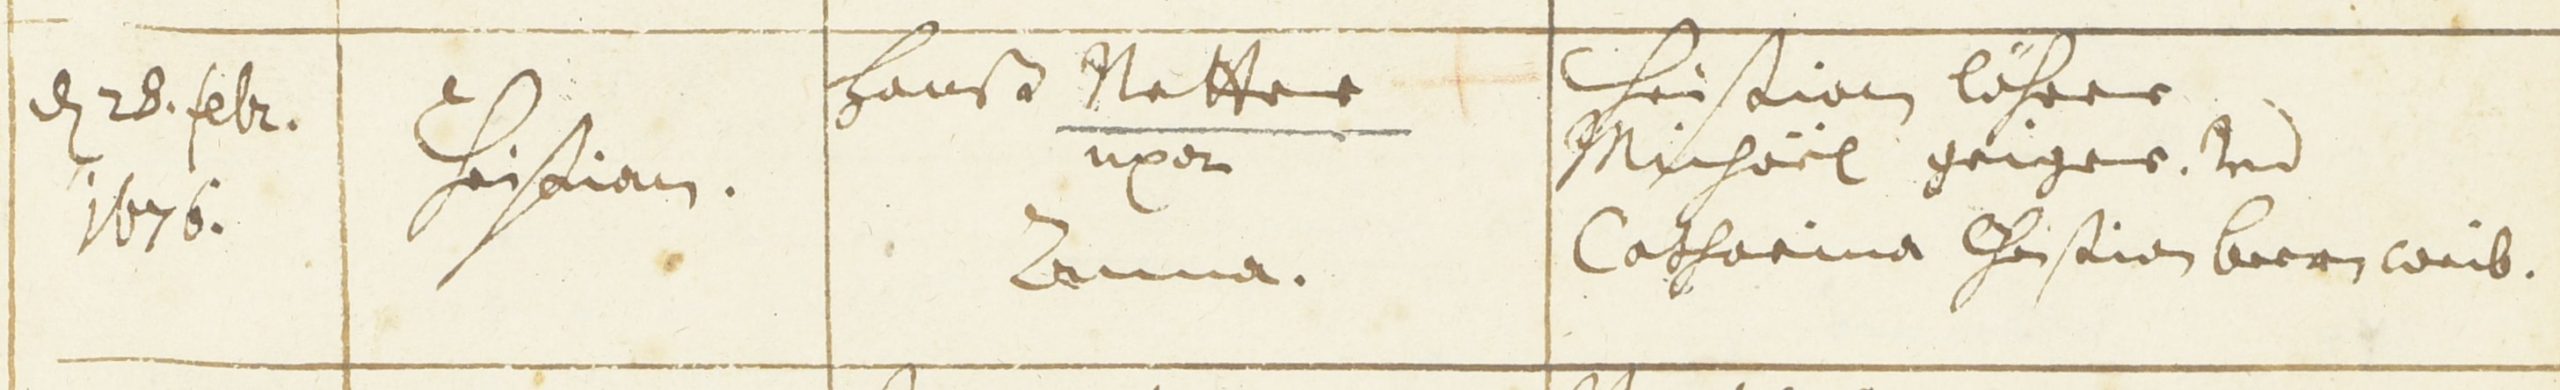 dẽ 28. febr.
1676.
Christian.
Hanß Netter
uxor
Anna.
Christian Löher
Michäel geiger. Vnd
Catharina Christian beern weib.